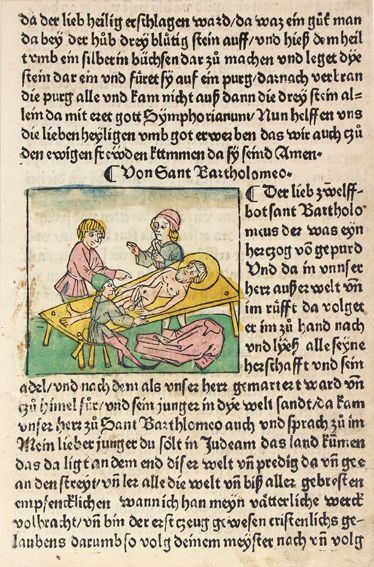 da der lieb heilig erschlagen ward/da waz ein gůt man
da bey der hůb drey blůtig stein auff/vnd hieß dem heil
tumb ein silberin büchsen dar zů machen vnd leget dÿe
stein dar ein vnd fůret sÿ auff ein purg/darnach verbran
die purg alle vnd kam nicht auß dann die dreÿ stein al-
lein da mit eret gott Symphorianum Nun helff en vns
die lieben heyligen vmb got erwerben das wir auch czů
den ewigen frewden kummen da sÿ seind Amen·
¶ Von Sant Bartholomeo·
¶ Der lieb zwelff-
bot sant Bartholo
meus der was eyn
herczog vō gepurd
Vnd da in vnnser
herr auß er welt vn̄
im růfft da volget
er im zů hand nach
vnd lÿeß alle seyne
herschafft vnd sein
adel/vnd nach dem als vnser herr gemartert ward vn̄
czů himel fůr/vnd sein junger in dÿe welt sandt/da kam
vnser herr zů Sant Barthlomeo auch vnd sprach zů im
Mein lieber junger du sölt in Judeam das land kůmen
das da ligt an dem end diser welt vn̄ predig da vn̄ gee
an den streyt/vn̄ ler alle die welt vn̄ biß aller gebresten
empfencklichen wann ich han meyn vätterliche werck
volbracht/vn̄ bin der erst czeug gewesen cristenlichs ge-
laubens darumb so volg deinem meyster nach vn̄ volg